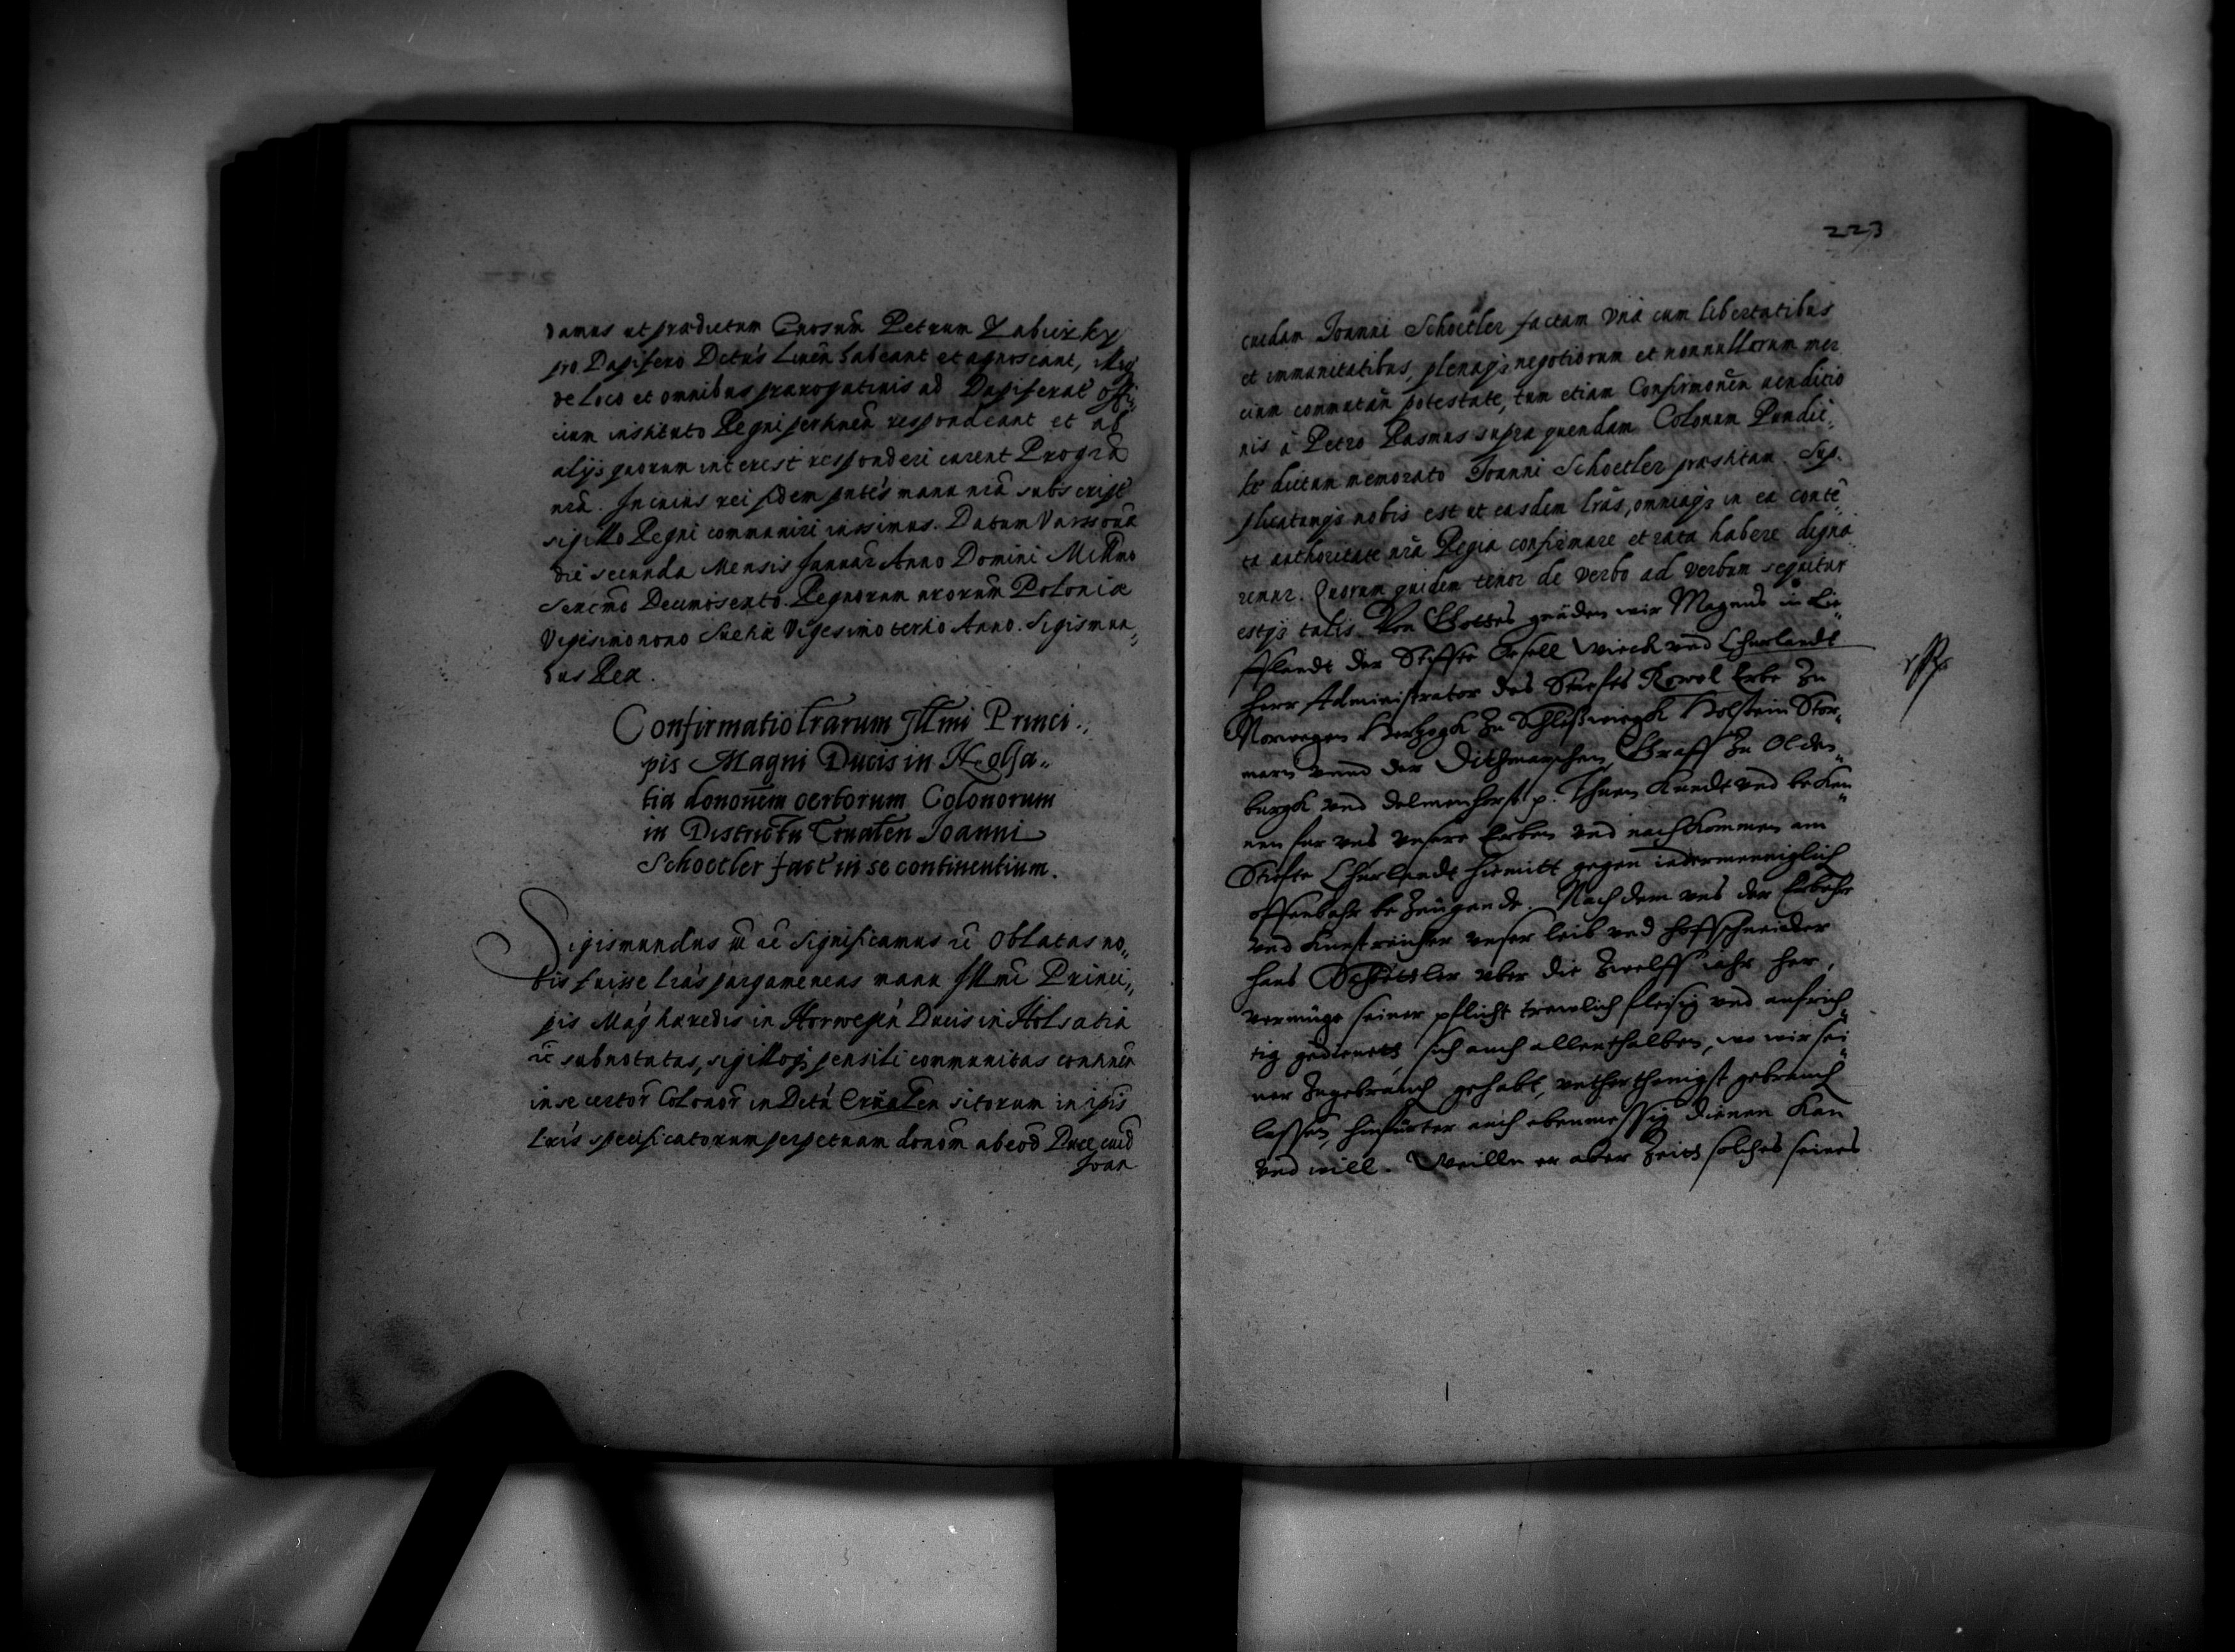 damus ut prædictum Gnosum Petrum Zabierzky
pro Dapifero Dctus Liuen habeant et agnoscant,
de loco et omnibus prærogatiuis ad Dapiferat offi„
cium instituto Regni pertinen respondeant et ab
alys quorum interest responderi curent Pro gra
nra. In cuius rei fidem pntes manu nra subscript
sigillo Regni communiri iussimus. Datum Varsouiæ
die secunda Mensis Januar Anno Domini Millmo
Sexcmo Decimosexto. Regnorum nrorum Poloniæ
Vigesimonono Sueciæ Vigesimo tertio Anno. Sigismun„
dus Rex.
Confirmatio lrarum Illmi Princi„
pis Magni Ducis in Holsa„
tia dononem certorum Colonorum
in Districtu Joanni
Schoetler fact in se continentium.
Sigismundus etc Significamus etc Oblatas no„
bis fuisse lras pargameneas manu Illmi Princi„
pis Mag hæredis in Norwegia Ducis in Holsatia
etc subnotatas, sigilloq pensili communitas continen
in se certor Colonor in Dctu sitorum in ipis
lris specificatorum perpetuam donom ab eod Duce cuid
Joan
223
cuidam Joanni Schoetler factam Vna cum libertatibus
et immunitatibus, plenaqz negotiorum et nonnullorum mer
cium commutan potestate, tum etiam Confirmonem venditio
nis à Petro Rasmus supra quendam Colonum Pundic„
ke dictum memorato Joanni Schoetler præstitam. Sup„
plicatumqz nobis est ut easdem lras, omniaqz in ea conte„
ta authoritate nra Regia confirmare et rata habere digna
remur. Quorum quidem tenor de verbo ad verbum sequitur
estqz talis. Von Gottes gnaden wir Magnus in Lie„
fflandt der Stiffte Oesell Wieck vnd Churlandt
Herr Administrator des Stiefts Rewel Erbe Zu
Norwegen Herzogk Zu Schleßwiegk Holstein Stor„
marn vnnd der Dithmarschen, Graff Zu Olden„
burgk vnd Delmenhorst p. Thuen Kundt vnd beken„
nen fur vns vnsere Erben vnd nachkommen am
Stiefte Churlandt hiemitt gegen iedermenniglich
offenbahr beZeugende. Nachdem vns der Erbahr
vnd Kunstreicher vnser leib vnd hoffschneider
hans Schöttler vber die Zwelff iahr her,
vermüge seiner pflicht trewlich fleisig vnd aufrich„
tig gedienett sich auch allenthalben, wo wir sei„
ner Zugebrauch gehabt, vnterthenigst gebrauch
lassen, hinfürter auch ebenmessig dienen kan
vnd will. Weilln er aber Zeitt solches seines